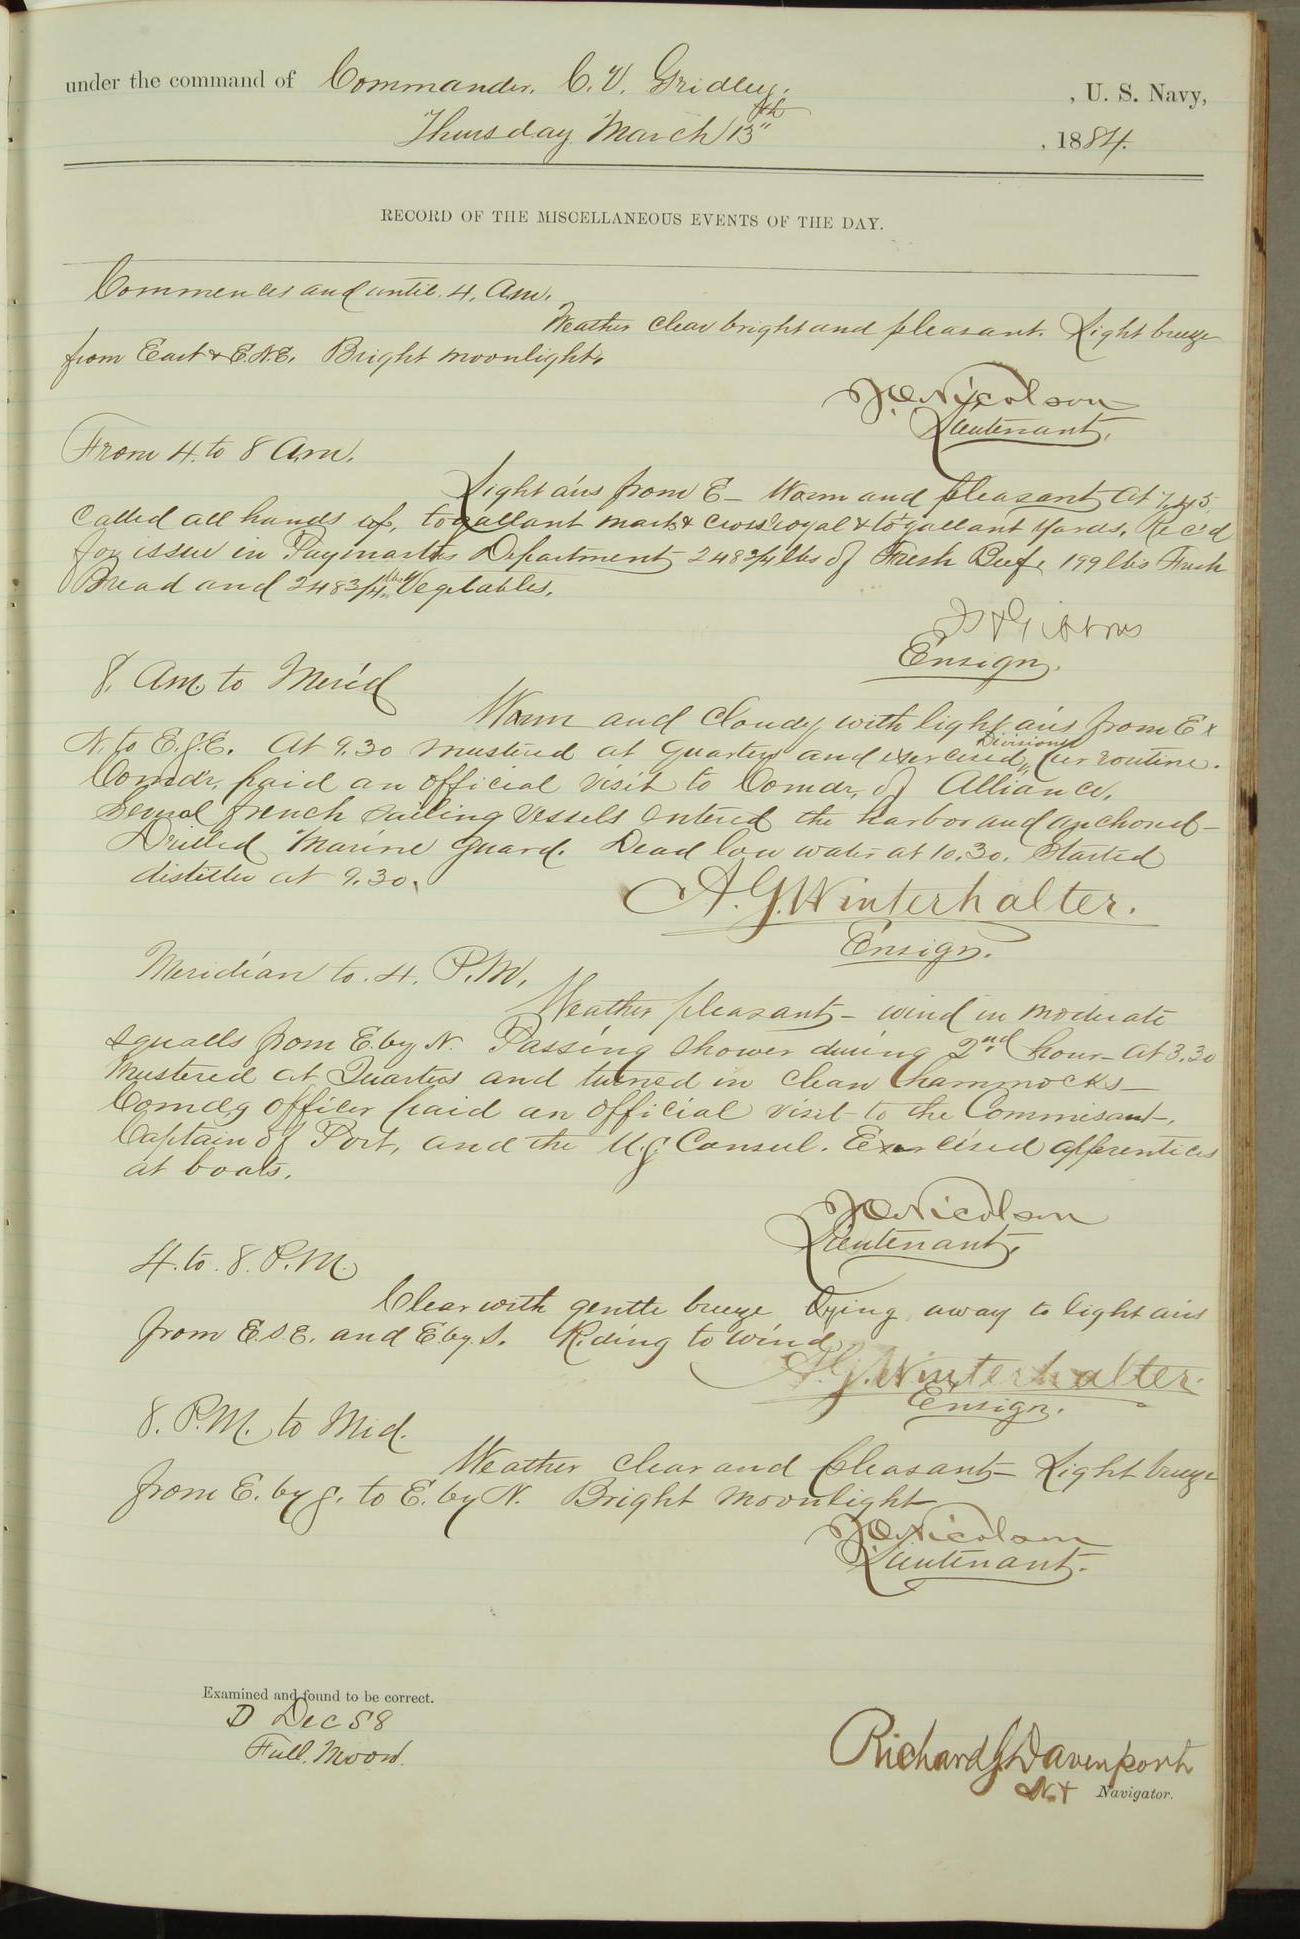 under the command of Commander. C. V. Gridley. , U. S. Navy,
Thursday March 13"th , 1884.
RECORD OF THE MISCELLANEOUS EVENTS OF THE DAY.
Commences and until. 4. A.m.
Weather clear bright and pleasant. Light breeze
from East & E.N.E. Bright moonlight.
Nicolson
Lieutenant.
From 4. to 8 A.m.
Light airs from E - Warm and pleasant At 7.45,
Called all hands up, to'gallant mast & cross royal & to'gallant yards. Rec'd
for issue in Paymasters Department 248 3/4 lbs of Fresh Beef, 199 lbs Fresh
Bread and 248 3/4 lbs Vegetables.
Ensign.
8. Am. to Meri'd
Warm and cloudy, with light airs from E x
N. to E.S.E. At 9.30 mustered at quarters and exercised Divisions per routine.
Comd'r. paid an official visit to Comdr. of Alliance.
Several french sailing vessels entered the harbor and anchored -
Drilled Marine Guard. Dead low water at 10.30. Started
distiller at 9.30.
A. G. Winterhalter.
Ensign.
Meridian to. 4. P.M.
Weather pleasant - wind in moderate
squalls from E. by N. Passing shower during 2nd hour - At 3.30
Mustered at Quarters and turned in clean hammocks -
Comd'g officer paid an official visit to the Commisant,
Captain of Port, and the U.S Consul. Exercised apprentices
at boats.
Nicolson
Lieutenant.
4. to. 8. P.M.
Clear with gentle breeze dying away to light airs
from E.S.E. and E by. S. Riding to wind
A. G. Winterhalter.
Ensign.
8. P.M. to Mid.
Weather clear and pleasant - Light breeze
from E. by S. to E. by N. Bright moonlight
Nicolson
Lieutenant.
Examined and found to be correct.
D Dec 58
Full. Moon.
Richard G Davenport
Navigator.